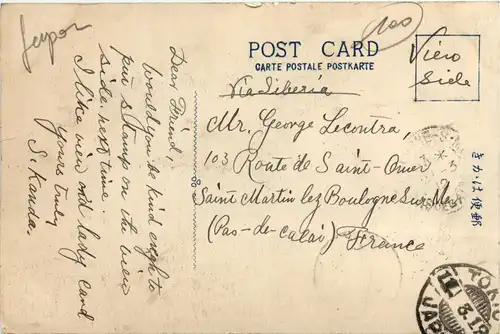 Japon
100
POST CARD
CARTE POSTALE POSTKARTE
View
Side
Via Siberia
Mr. George Lecontra,
103 Route de Saint-Omer
Saint Martin lez Boulogne Sur-Mer
(Pas-de-calai) France
きかは便郵
Dear Friend
Would you be kind enough to
put s stamp on the view
side next time.
I like view old lady card
Yours truly
S. Kanda.
TOK
JAP